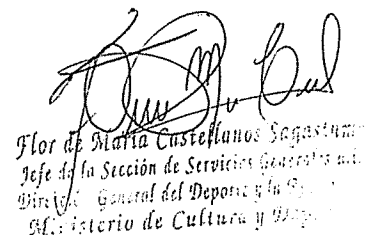 Flor de María Castellanos Sagastume
Jefe de la Sección de Servicios Generales a.i.
General del Deporte y la
Ministerio de Cultura y